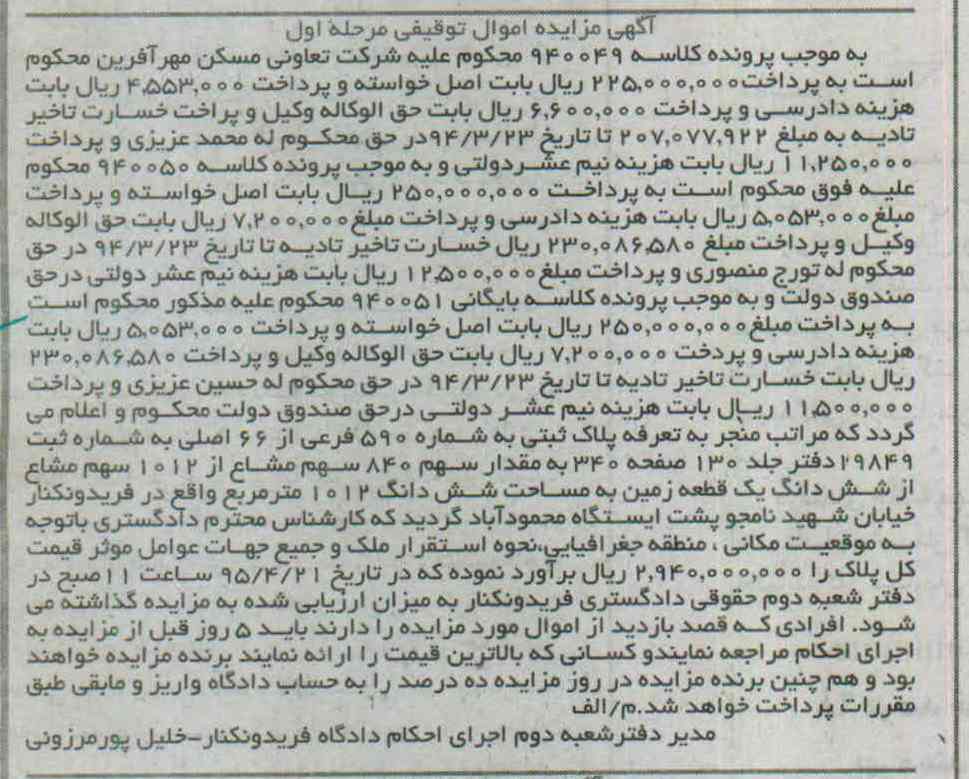 آگهی مزایده اموال توقیفی مرحله اول
به موجب پرونده کلاسه ۹۴۰۰۴۹ محکوم علیه شرکت تعاونی مسکن مهرآفرین محکوم
است به پرداخت ۲۲۵,۰۰۰,۰۰۰ ریال بابت اصل خواسته و پرداخت ۴,۵۵۳,۰۰۰ ریال بابت
هزینه دادرسی و پرداخت ۶,۶۰۰,۰۰۰ ریال بابت حق الوکاله وکیل و پراخت خسارت تاخیر
تادیه به مبلغ ۲۰۷,۰۷۷,۹۲۲ تا تاریخ ۹۴/۳/۲۳در حق محکوم له محمد عزیزی و پرداخت
۱۱,۲۵۰,۰۰۰ ریال بابت هزینه نیم عشردولتی و به موجب پرونده کلاسه ۹۴۰۰۵۰ محکوم
علیه فوق محکوم است به پرداخت ۲۵۰,۰۰۰,۰۰۰ ریال بابت اصل خواسته و پرداخت
مبلغ ۵,۰۵۳,۰۰۰ ریال بابت هزینه دادرسی و پرداخت مبلغ ۷,۲۰۰,۰۰۰ ریال بابت حق الوکاله
وکیل و پرداخت مبلغ ۲۳۰,۰۸۶,۵۸۰ ریال خسارت تاخیر تادیه تا تاریخ ۹۴/۳/۲۳ در حق
محکوم له تورج منصوری و پرداخت مبلغ ۱۲,۵۰۰,۰۰۰ ریال بابت هزینه نیم عشر دولتی درحق
صندوق دولت و به موجب پرونده کلاسه بایگانی ۹۴۰۰۵۱ محکوم علیه مذکور محکوم است
به پرداخت مبلغ ۲۵۰,۰۰۰,۰۰۰ ریال بابت اصل خواسته و پرداخت ۵,۰۵۳,۰۰۰ ریال بابت
هزینه دادرسی و پردخت ۷,۲۰۰,۰۰۰ ریال بابت حق الوکاله وکیل و پرداخت ۲۳۰,۰۸۶,۵۸۰
ریال بابت خسارت تاخیر تادیه تا تاریخ ۹۴/۳/۲۳ در حق محکوم له حسین عزیزی و پرداخت
۱۱,۵۰۰,۰۰۰ ریال بابت هزینه نیم عشر دولتی درحق صندوق دولت محکوم و اعلام می
گردد که مراتب منجر به تعرفه پلاک ثبتی به شماره ۵۹۰ فرعی از ۶۶ اصلی به شماره ثبت
۲۹۸۴۹ دفتر جلد ۱۳۰ صفحه ۳۴۰ به مقدار سهم ۸۴۰ سهم مشاع از ۱۰۱۲ سهم مشاع
از شش دانگ یک قطعه زمین به مساحت شش دانگ ۱۰۱۲ مترمربع واقع در فریدونکنار
خیابان شهید نامجو پشت ایستگاه محمودآباد گردید که کارشناس محترم دادگستری باتوجه
به موقعیت مکانی ، منطقه جغرافیایی،نحوه استقرار ملک و جمیع جهات عوامل موثر قیمت
کل پلاک را ۲,۹۴۰,۰۰۰,۰۰۰ ریال برآورد نموده که در تاریخ ۹۵/۴/۲۱ ساعت ۱۱صبح در
دفتر شعبه دوم حقوقی دادگستری فریدونکنار به میزان ارزیابی شده به مزایده گذاشته می
شود. افرادی که قصد بازدید از اموال مورد مزایده را دارند باید ۵ روز قبل از مزایده به
اجرای احکام مراجعه نمایندو کسانی که بالاترین قیمت را ارائه نمایند برنده مزایده خواهند
بود و هم چنین برنده مزایده در روز مزایده ده درصد را به حساب دادگاه واریز و مابقی طبق
مقررات پرداخت خواهد شد.م/الف
مدیر دفترشعبه دوم اجرای احکام دادگاه فریدونکنار-خلیل پورمرزونی